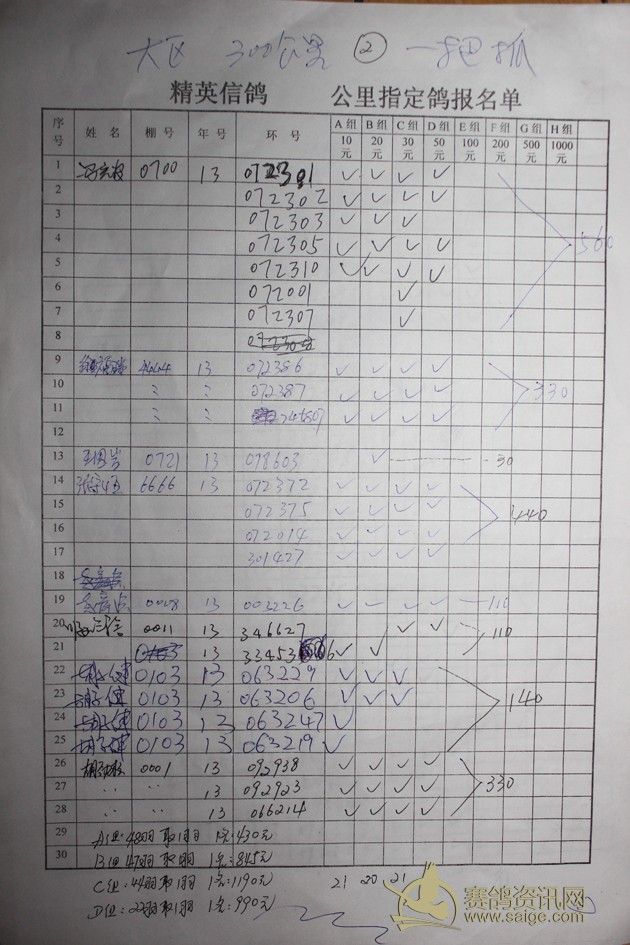 大区 300公里 ② 一把抓
精英信鸽 公里指定鸽报名单
序号 姓名 棚号 年号 环号 A组 10元 B组 20元 C组 30元 D组 50元 E组 100元 F组 200元 G组 500元 H组 1000元
1 0700 13 072301 ✓ ✓ ✓ ✓
2 072302 ✓ ✓ ✓ ✓
3 072303 ✓ ✓ ✓
4 072305 ✓ ✓ ✓ ✓ 560
5 072310 ✓ ✓ ✓ ✓
6 072001 ✓
7 072307 ✓
8
9 13 072386 ✓ ✓ ✓ ✓
10 072387 ✓ ✓ ✓ ✓ 330
11 ✓ ✓ ✓ ✓
12
13 0721 13 078603 ✓ 30
14 6666 13 072372 ✓ ✓ ✓ ✓
15 072375 ✓ ✓ ✓ ✓ 440
16 072014 ✓ ✓ ✓ ✓
17 301427 ✓ ✓ ✓ ✓
18
19 0008 13 003226 ✓ ✓ ✓ ✓ 110
20 0011 13 346627 ✓ ✓ 110
21 13 ✓ ✓
22 0103 13 063229 ✓ ✓ ✓
23 0103 13 063206 ✓ ✓ ✓ 140
24 0103 13 063247 ✓
25 0103 13 063219 ✓
26 0001 13 092938 ✓ ✓ ✓ ✓
27 13 092923 ✓ ✓ ✓ ✓ 330
28 13 066214 ✓ ✓ ✓ ✓
29 A组:48羽取1羽 1名:430元
30 B组47羽取1羽 1名:845元
C组:44羽取1羽 1名:1190元 21 20 21
D组:22羽取1羽 1名:990元
赛鸽资讯网
www.saige.com